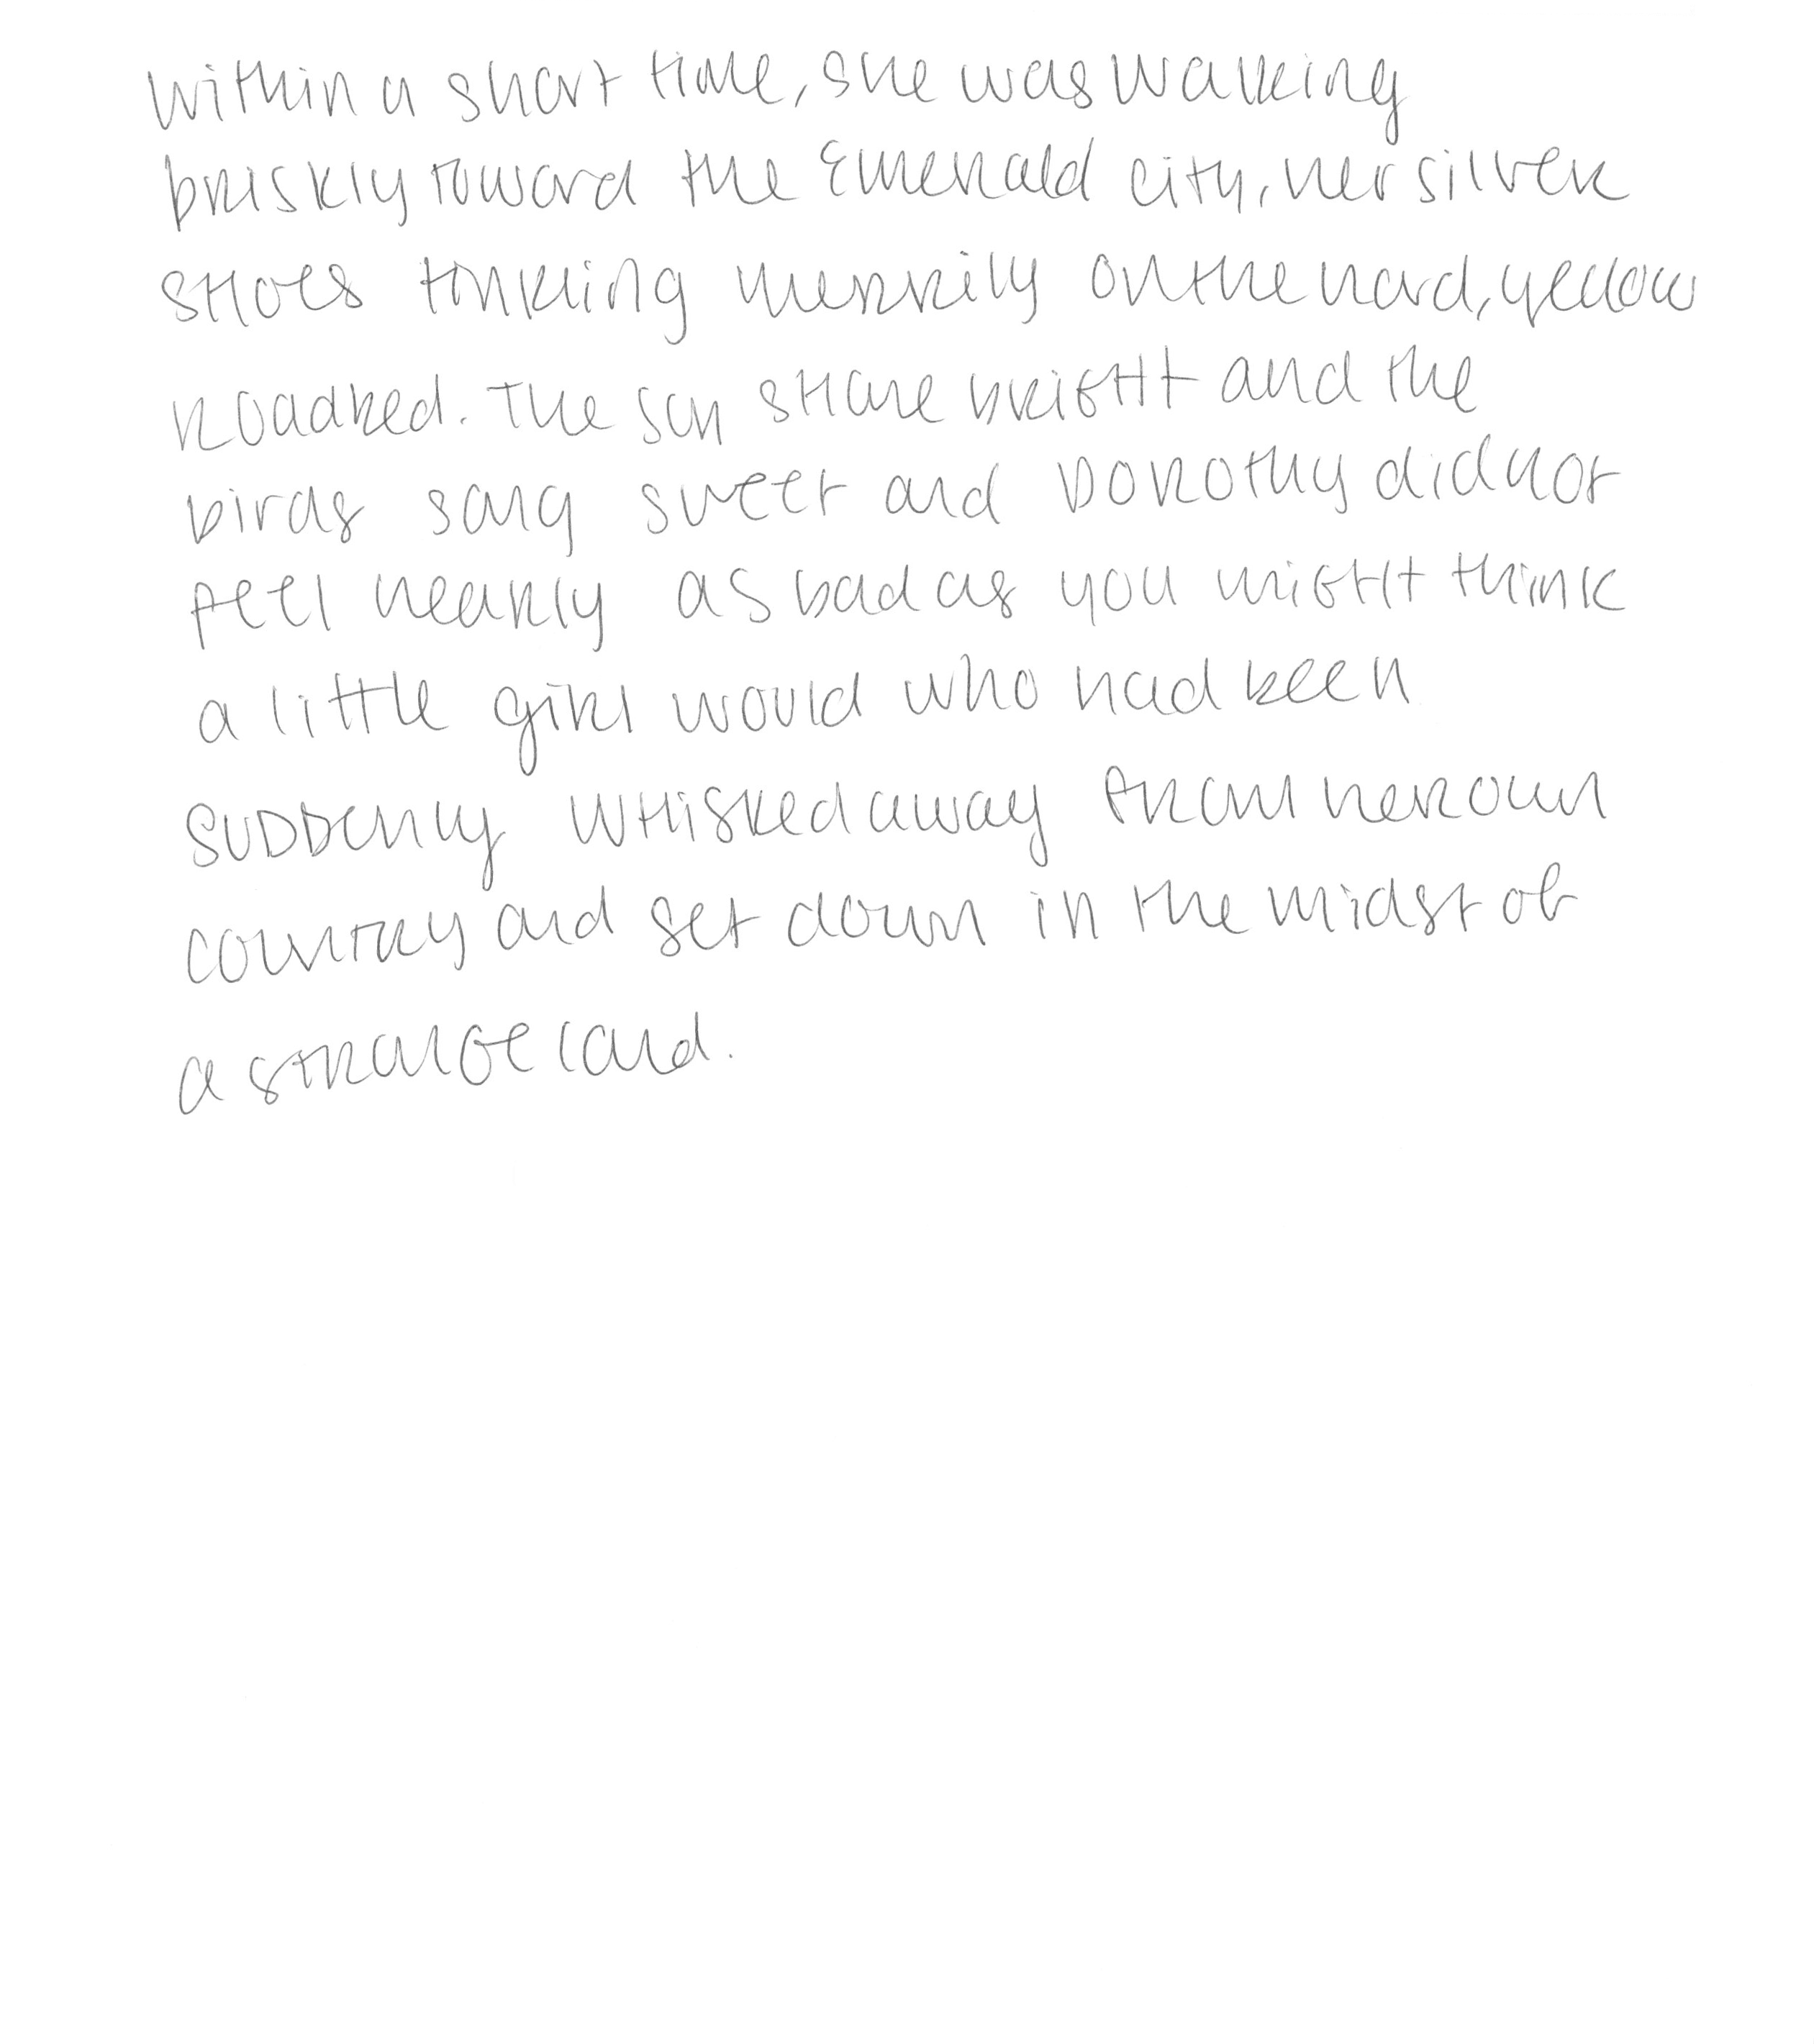 Within a short time, she was walking
briskly toward the Emerald City, her silver
shoes tinkling merrily on the hard, yellow
roadbed. The sun shone bright and the
birds sang sweet and Dorothy did not
feel nearly as bad as you might think
a little girl would who had been
suddenly whisked away from her own
country and set down in the midst of
a strange land.